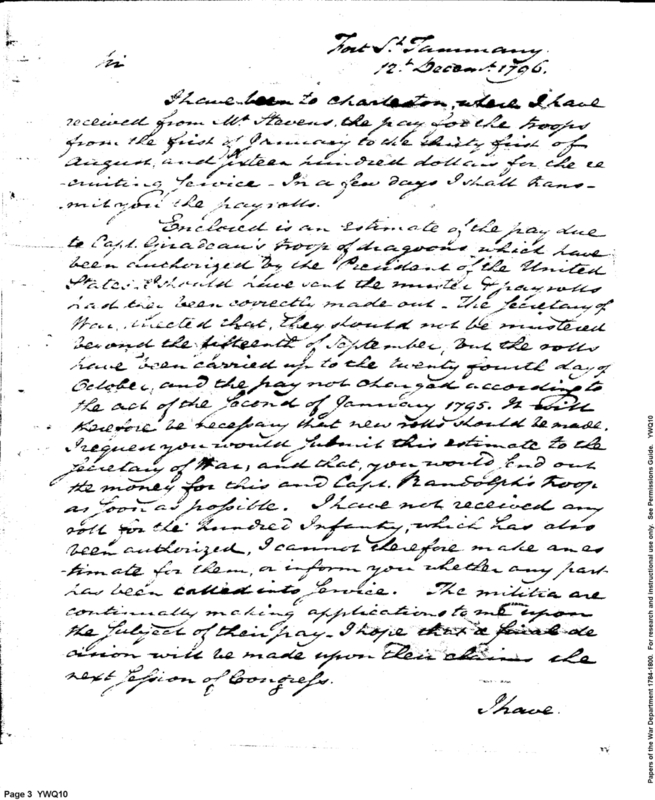 Fort St. Tammany.
12th Decemr. 1796.
Sir
I have been to Charleston, where I have
received from Mr. Stevens, the pay for the troops
from the first of January to the thirty first of
August, and fifteen hundred dollars for the re
-cruiting Service - In a few days I shall trans-
-mit you the payrolls.
Enclosed is an estimate of the pay due
to Capt. Giradeau's troop of dragoons which have
been authorized by the President of the United
States. I should have sent the muster & payrolls
had they been correctly made out - The Secretary of
War, directed that, they should not be mustered
beyond the fifteenth of September, but the rolls
have been carried up to the twenty fourth day of
October, and the pay not charged according to
the act of the Second of January 1795. It will
therefore be necessary that new rolls should be made.
I request you would Submit this estimate to the
Secretary of War, and that, you would Send out
the money for this and Capt. Randolph's troop
as Soon as possible. I have not received any
roll for the hundred Infantry, which has also
been authorized, I cannot therefore make an es
-timate for them, or inform you whether any part
has been called into Service. The militia are
continually making applications to me upon
the Subject of their pay - I hope that a final de
cision will be made upon their claims the
next Session of Congress.
I have
Page 3 YWQ10
Papers of the War Department 1784-1800. For research and instructional use only. See Permissions Guide. YWQ10